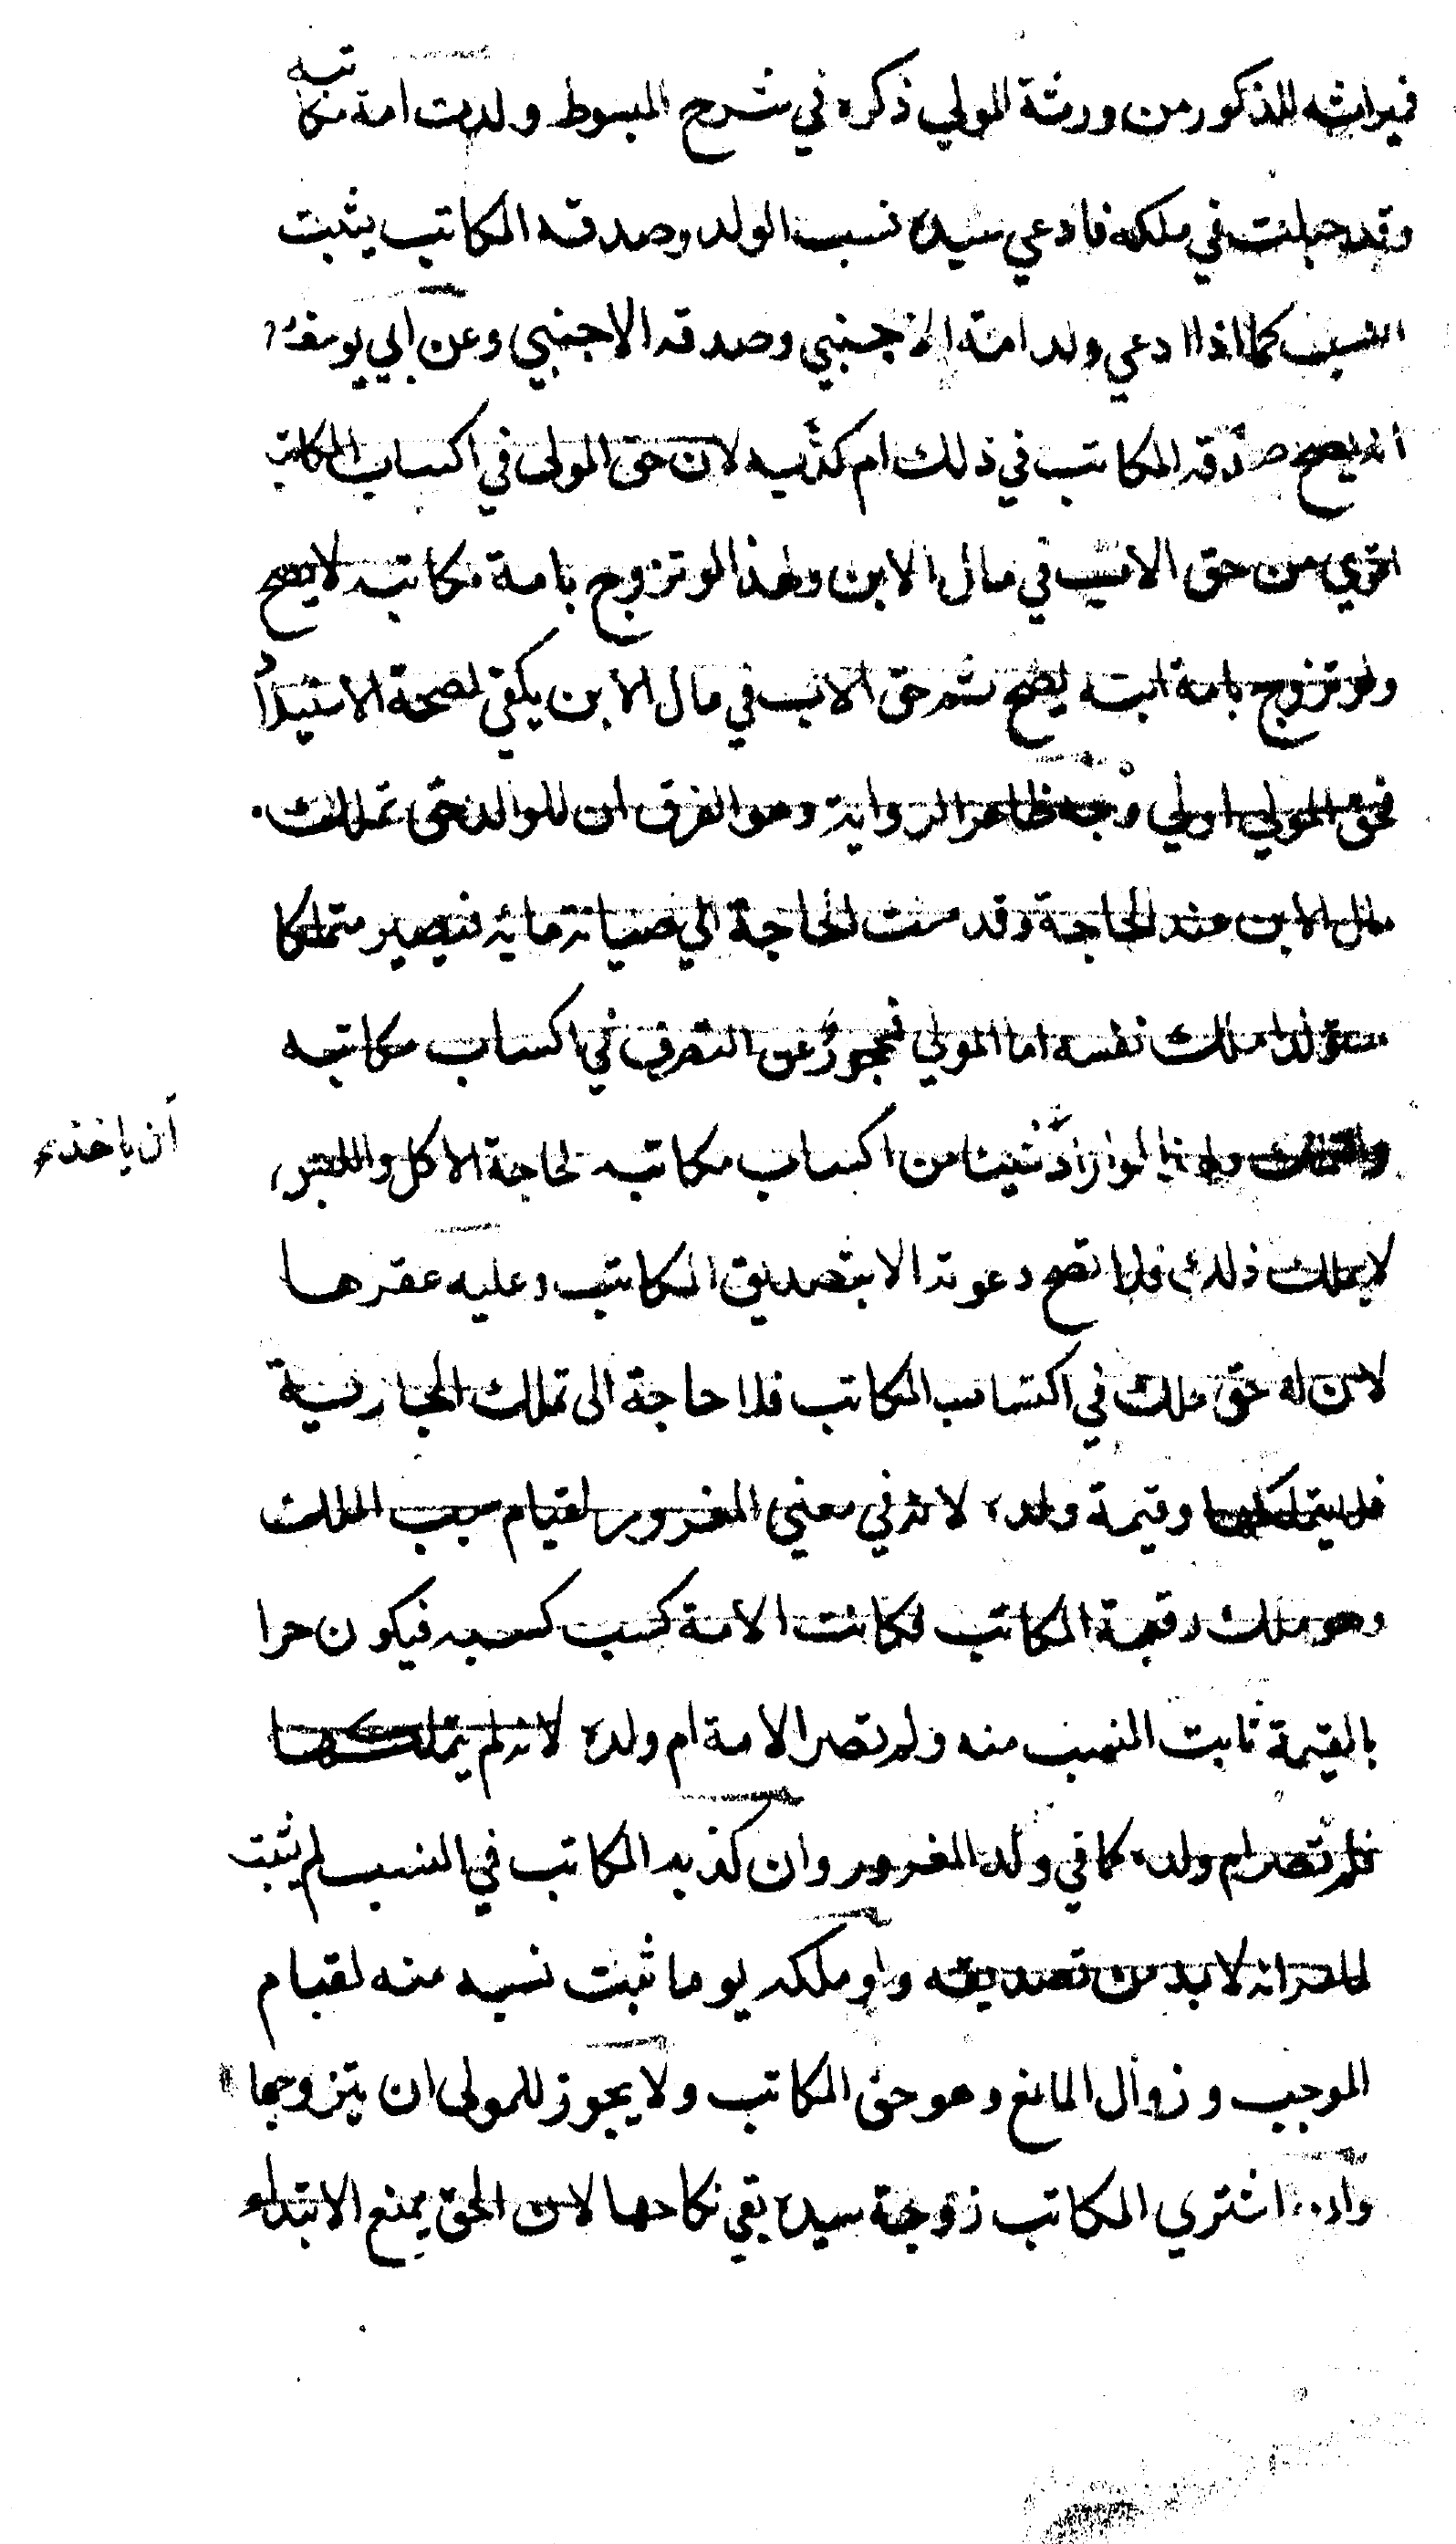 فميراثه للذكور من ورثة المولي ذكره في شرح المبسوط ولدت امة مكاتبه
وقد حبلت في ملكه فادعي سيده نسب الولد وصدقه المكاتب يثبت
النسب كما اذا ادعي ولد امة الاجنبي وصدقه الاجنبي وعن ابي يوسف
انه يصح صدقه المكاتب في ذلك ام كذبه لان حق المولى في اكساب المكاتب
اقوي من حق الاب في مال الابن ولهذا لو تزوج بامة مكاتبه لا يصح
ولو تزوج بامة ابنه يصح ثم حق الاب في مال الابن يكفي لصحة الاستيلاد
فحق المولي اولي وجه ظاهر الرواية وهو الفرق ان للوالد حق تملك
مال الابن عند الحاجة وقد مست الحاجة الي صيانة مائه فيصير متملكا
مستولدا ملك نفسه اما المولي فمحجور عن التصرف في اكساب مكاتبه
والتملك ولهذا لو اراد شيئا من اكساب مكاتبه لحاجة الاكل واللبس
ان ياخذه
لا يملك ذلك فلا تصح دعوته الا بتصديق المكاتب وعليه عقرها
لان له حق ملك في اكتساب المكاتب فلا حاجة الى تملك الجارية
فلا يتملكها وقيمة ولده لانه في معني المغرور لقيام سبب الملك
وهو ملك رقبة المكاتب فكانت الامة كسب كسبه فيكون حرا
بالقيمة ثابت النسب منه ولم تصر الامة ام ولده لانه لم يتملكها
فلم تصر ام ولده كما في ولد المغرور وان كذبه المكاتب في النسب لم يثبت
لما مر انه لا بد من تصديقه ولو ملكه يوما ثبت نسبه منه لقيام
الموجب وزوال المانع وهو حق المكاتب ولا يجوز للمولى ان يتزوجها
وان اشتري المكاتب زوجة سيده بقي نكاحها لان الحق يمنع الابتداء